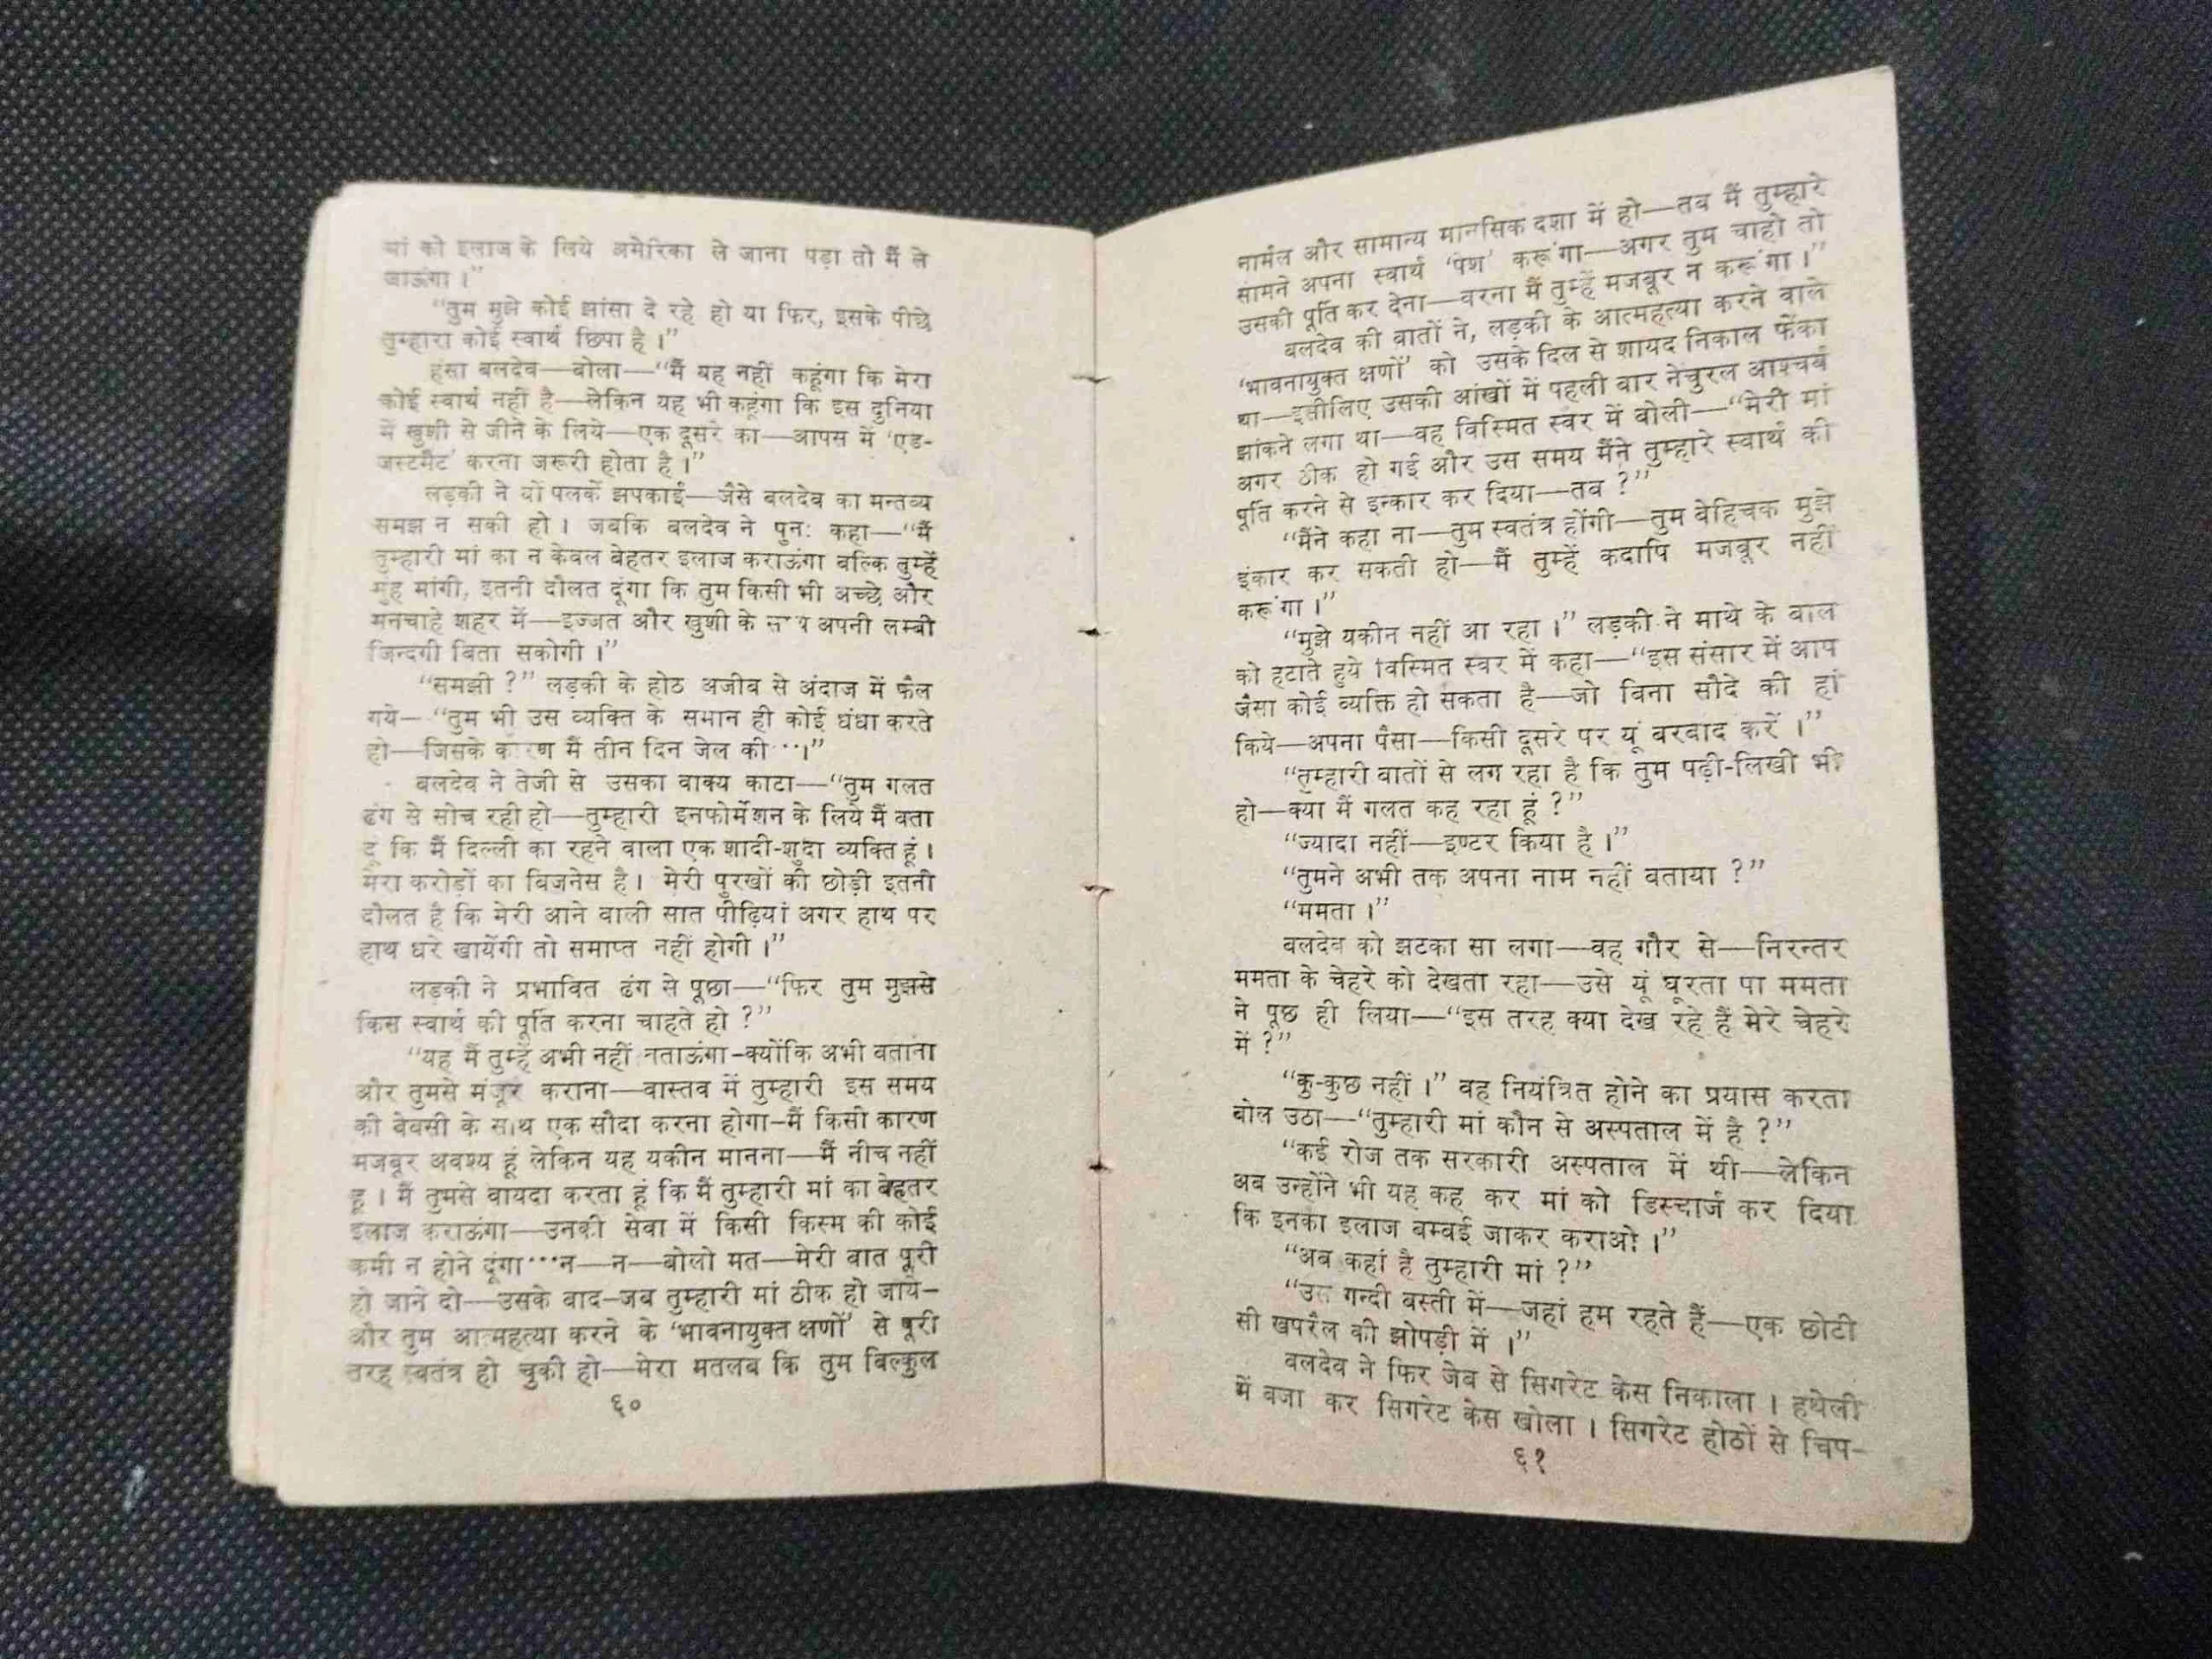 मां को इलाज के लिये अमेरिका ले जाना पड़ा तो मैं ले
जाऊंगा ।”
“तुम मुझे कोई झांसा दे रहे हो या फिर, इसके पीछे
तुम्हारा कोई स्वार्थ छिपा है ।”
हंसा बलदेव—बोला—“मैं यह नहीं कहूंगा कि मेरा
कोई स्वार्थ नहीं है—लेकिन यह भी कहूंगा कि इस दुनिया
में खुशी से जीने के लिये—एक दूसरे का—आपस में ‘एड-
जस्टमैंट’ करना जरूरी होता है ।”
लड़की ने यों पलकें झपकाईं—जैसे बलदेव का मन्तव्य
समझ न सकी हो । जबकि बलदेव ने पुनः कहा—“मैं
तुम्हारी मां का न केवल बेहतर इलाज कराऊंगा बल्कि तुम्हें
मुंह मांगी, इतनी दौलत दूंगा कि तुम किसी भी अच्छे और
मनचाहे शहर में—इज्जत और खुशी के साथ अपनी लम्बी
जिन्दगी बिता सकोगी ।”
“समझी ?” लड़की के होठ अजीब से अंदाज में फैल
गये—“तुम भी उस व्यक्ति के समान ही कोई धंधा करते
हो—जिसके कारण मैं तीन दिन जेल की ···।”
बलदेव ने तेजी से उसका वाक्य काटा—“तुम गलत
ढंग से सोच रही हो—तुम्हारी इनफोर्मेशन के लिये मैं बता
दूं कि मैं दिल्ली का रहने वाला एक शादी-शुदा व्यक्ति हूं ।
मेरा करोडों का बिजनेस है । मेरी पुरखों की छोड़ी इतनी
दौलत है कि मेरी आने वाली सात पीढ़ियां अगर हाथ पर
हाथ धरे खायेंगी तो समाप्त नहीं होगी ।”
लड़की ने प्रभावित ढंग से पूछा—“फिर तुम मुझसे
किस स्वार्थ की पूर्ति करना चाहते हो ?”
“यह मैं तुम्हें अभी नहीं बताऊंगा–क्योंकि अभी बताना
और तुमसे मंजूर कराना—वास्तव में तुम्हारी इस समय
की बेबसी के साथ एक सौदा करना होगा–मैं किसी कारण
मजबूर अवश्य हूं लेकिन यह यकीन मानना—मैं नीच नहीं
हू । मैं तुमसे वायदा करता हूं कि मैं तुम्हारी मां का बेहतर
इलाज कराऊंगा—उनकी सेवा में किसी किस्म की कोई
कमी न होने दूंगा···न—न—बोलो मत—मेरी बात पूरी
हो जाने दो—उसके बाद–जब तुम्हारी मां ठीक हो जाये–
और तुम आत्महत्या करने के ‘भावनायुक्त क्षणों’ से पूरी
तरह स्वतंत्र हो चुकी हो—मेरा मतलब कि तुम बिल्कुल
६०
नार्मल और सामान्य मानसिक दशा में हो—तब मैं तुम्हारे
सामने अपना स्वार्थ ‘पेश’ करूंगा—अगर तुम चाहो तो
उसकी पूर्ति कर देना—वरना मैं तुम्हें मजबूर न करूंगा ।”
बलदेव की बातों ने, लड़की के आत्महत्या करने वाले
‘भावनायुक्त क्षणों’ को उसके दिल से शायद निकाल फेंका
था—इसीलिए उसकी आंखों में पहली बार नेचुरल आश्चर्य
झांकने लगा था—वह विस्मित स्वर में बोली—“मेरी मां
अगर ठीक हो गई और उस समय मैंने तुम्हारे स्वार्थ की
पूर्ति करने से इन्कार कर दिया—तब ?”
“मैंने कहा ना—तुम स्वतंत्र होंगी—तुम बेहिचक मुझे
इंकार कर सकती हो—मैं तुम्हें कदापि मजबूर नहीं
करूंगा ।”
“मुझे यकीन नहीं आ रहा ।” लड़की ने माथे के बाल
को हटाते हुये विस्मित स्वर में कहा—“इस संसार में आप
जैसा कोई व्यक्ति हो सकता है—जो बिना सौदे की हां
किये—अपना पैसा—किसी दूसरे पर यूं बरबाद करें ।”
“तुम्हारी बातों से लग रहा है कि तुम पढ़ी-लिखी भी
हो—क्या मैं गलत कह रहा हूं ?”
“ज्यादा नहीं—इण्टर किया है ।”
“तुमने अभी तक अपना नाम नहीं बताया ?”
“ममता ।”
बलदेव को झटका सा लगा—वह गौर से—निरन्तर
ममता के चेहरे को देखता रहा—उसे यूं घूरता पा ममता
ने पूछ ही लिया—“इस तरह क्या देख रहे हैं मेरे चेहरे
में ?”
“कु-कुछ नहीं ।” वह नियंत्रित होने का प्रयास करता
बोल उठा—“तुम्हारी मां कौन से अस्पताल में है ?”
“कई रोज तक सरकारी अस्पताल में थी—लेकिन
अब उन्होंने भी यह कह कर मां को डिस्चार्ज कर दिया
कि इनका इलाज बम्बई जाकर कराओ ।”
“अब कहां है तुम्हारी मां ?”
“उस गन्दी बस्ती में—जहां हम रहते हैं—एक छोटी
सी खपरैल की झोपड़ी में ।”
बलदेव ने फिर जेब से सिगरेट केस निकाला । हथेली
में बजा कर सिगरेट केस खोला । सिगरेट होठों से चिप–
६१